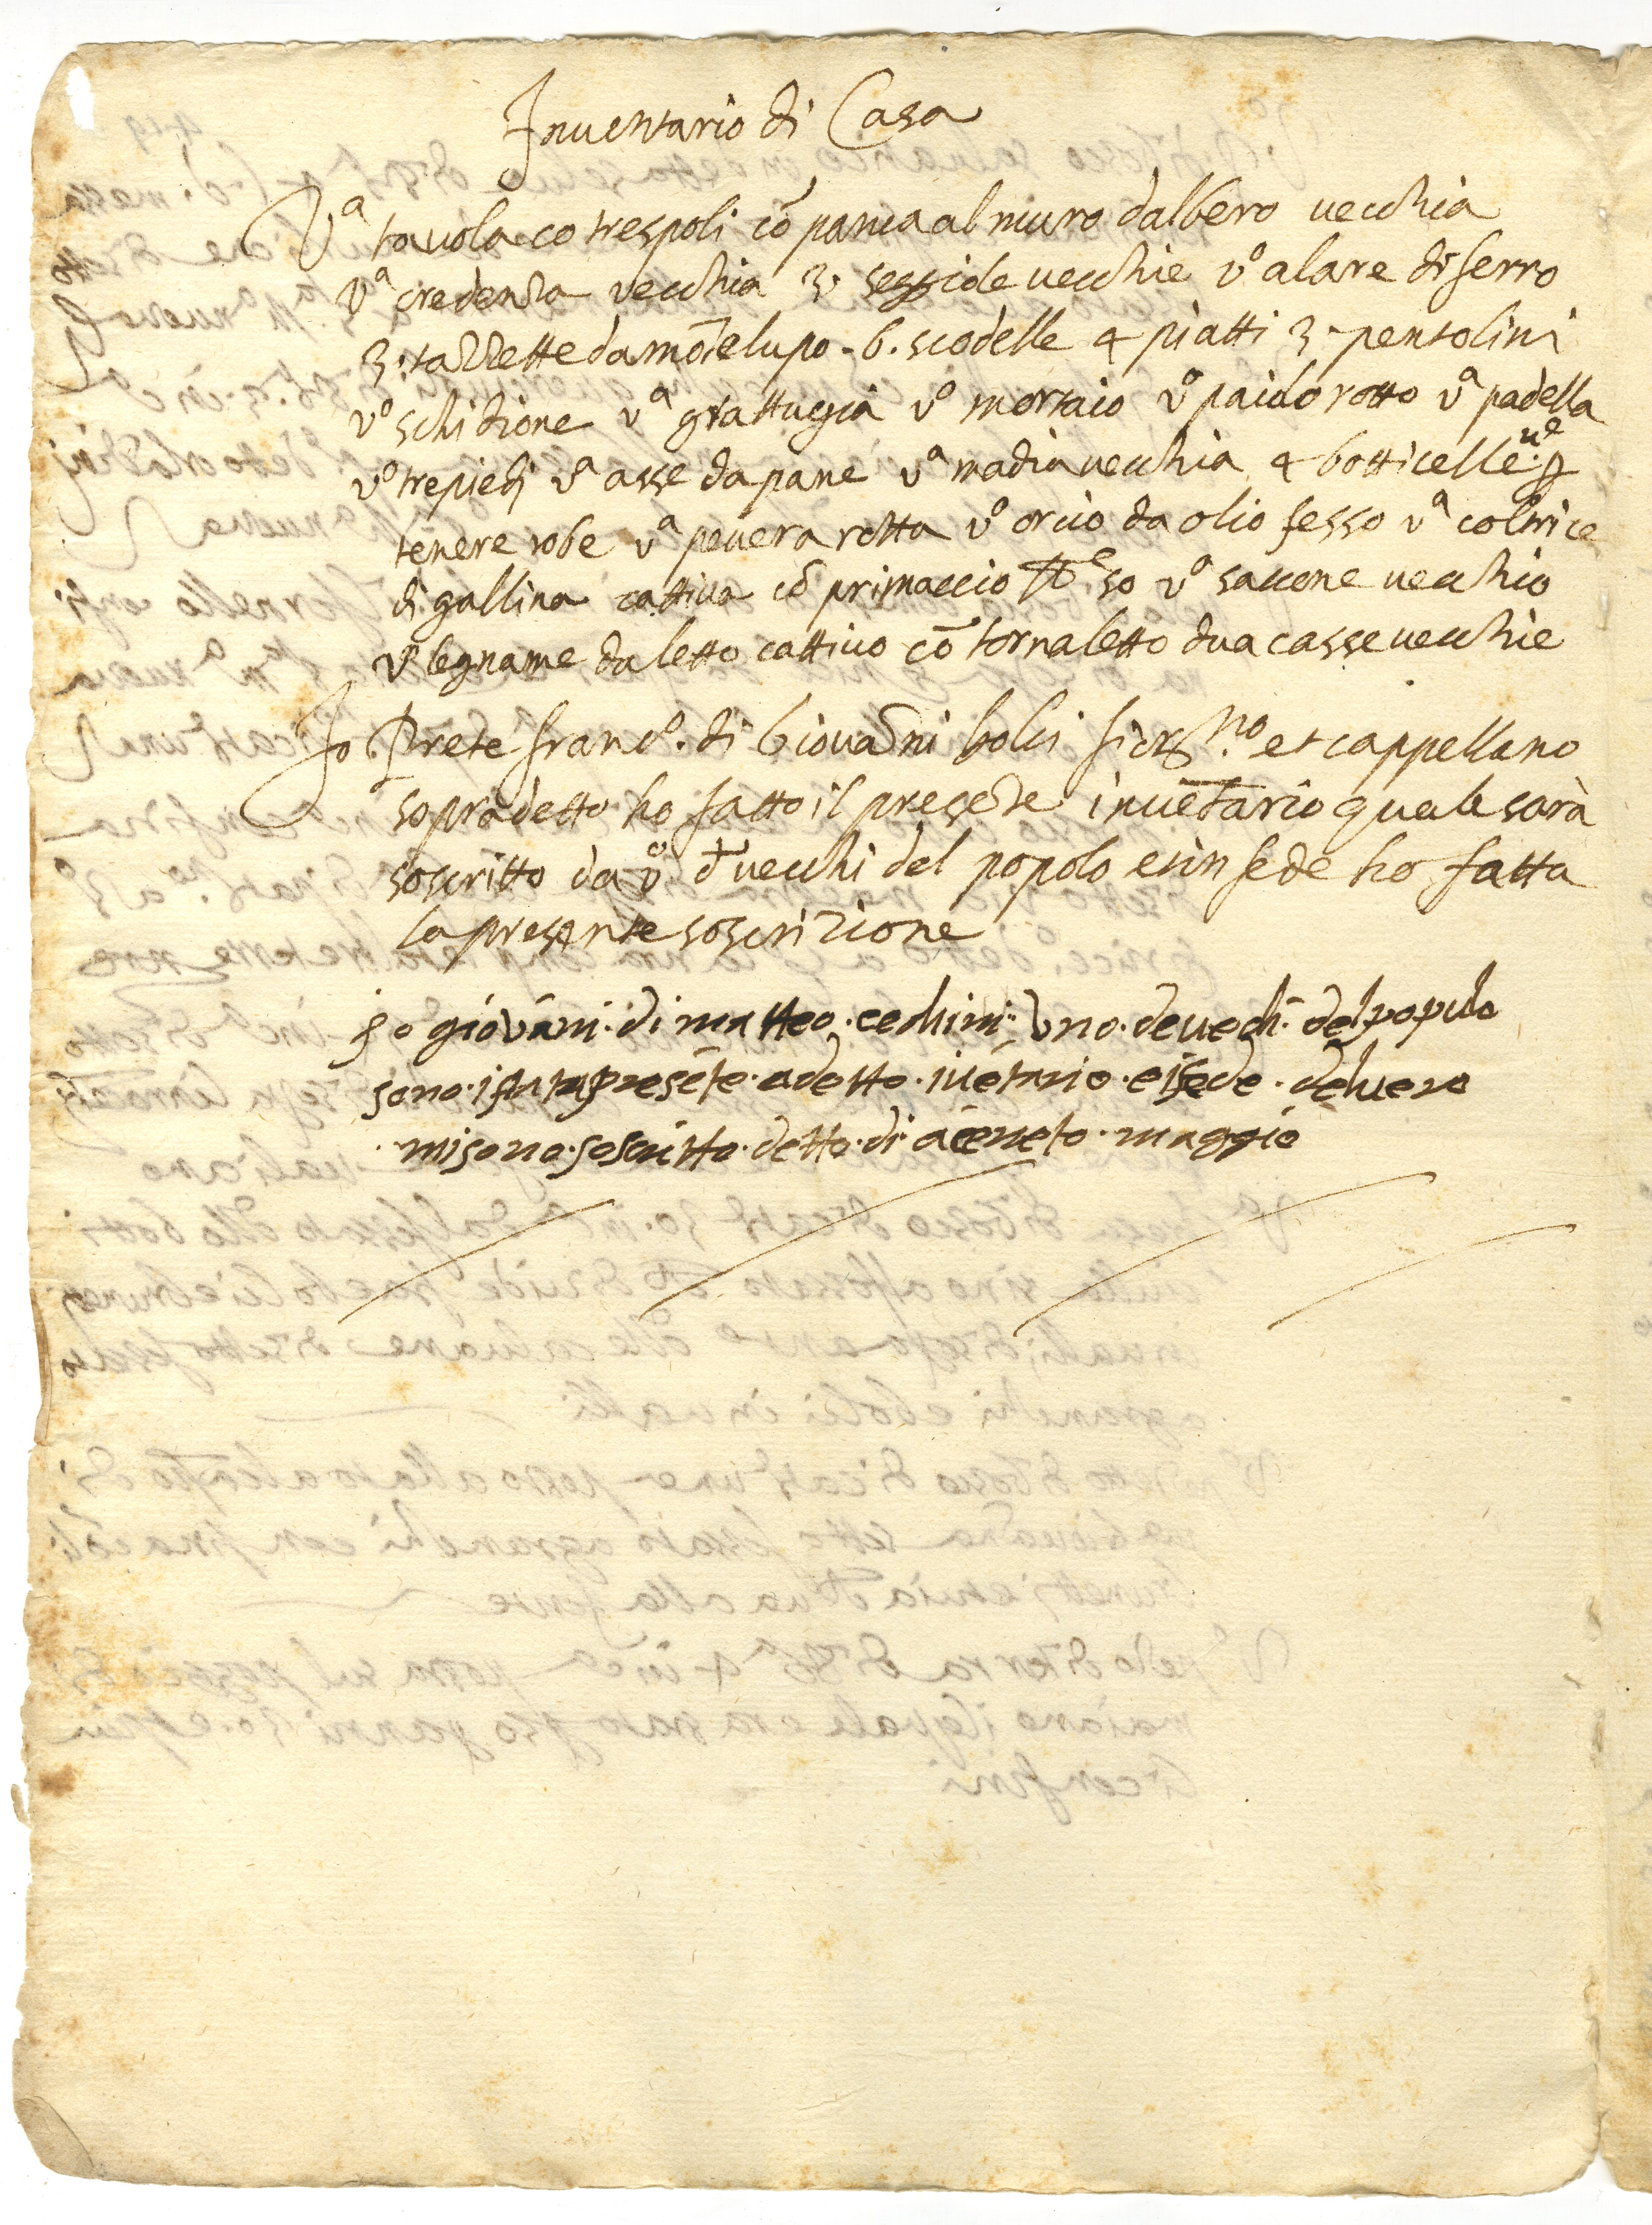 Inventario di Casa
Vª tavola co trespoli cõ panca al muro dalbero vecchia
vª credenza vecchia 3. seggiole vecchie vº alare di ferro
3. tazzette da mõtelupo. 6. scodelle 4 piatti 3. pentolini
vº schidione vª grattugia vº mortaio vº paiolo rotto vª padella
vº trepiedi vª asse da pane vª madia vecchia 4 botticelle
tenere robe vª pevera rotta vº orcio da olio fesso vª coltrice
di gallina cattiva cõ primaccio vº saccone vecchio
vº legname da letto cattivo cõ tornaletto dua casse vecchie
Io Prete Francº. di Giovañi et cappellano
sopradetto ho fatto il presẽte inuẽtario quale sarà
soscritto da vº d vecchi del popolo et in fede ho fatta
la presente soscrizione
Io giovãni. di matteo. cechini. vno. de vechi. del popolo
sono. istato presẽte. a detto. ivẽtario. e ĩ fede. del vero
mi sono. soscritto. detto. di maggio